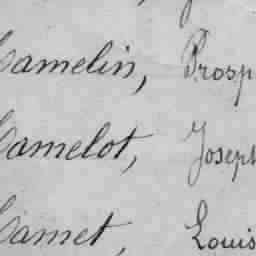 Camelin, Prosp
Camelot, Joseph
Camet, Louis